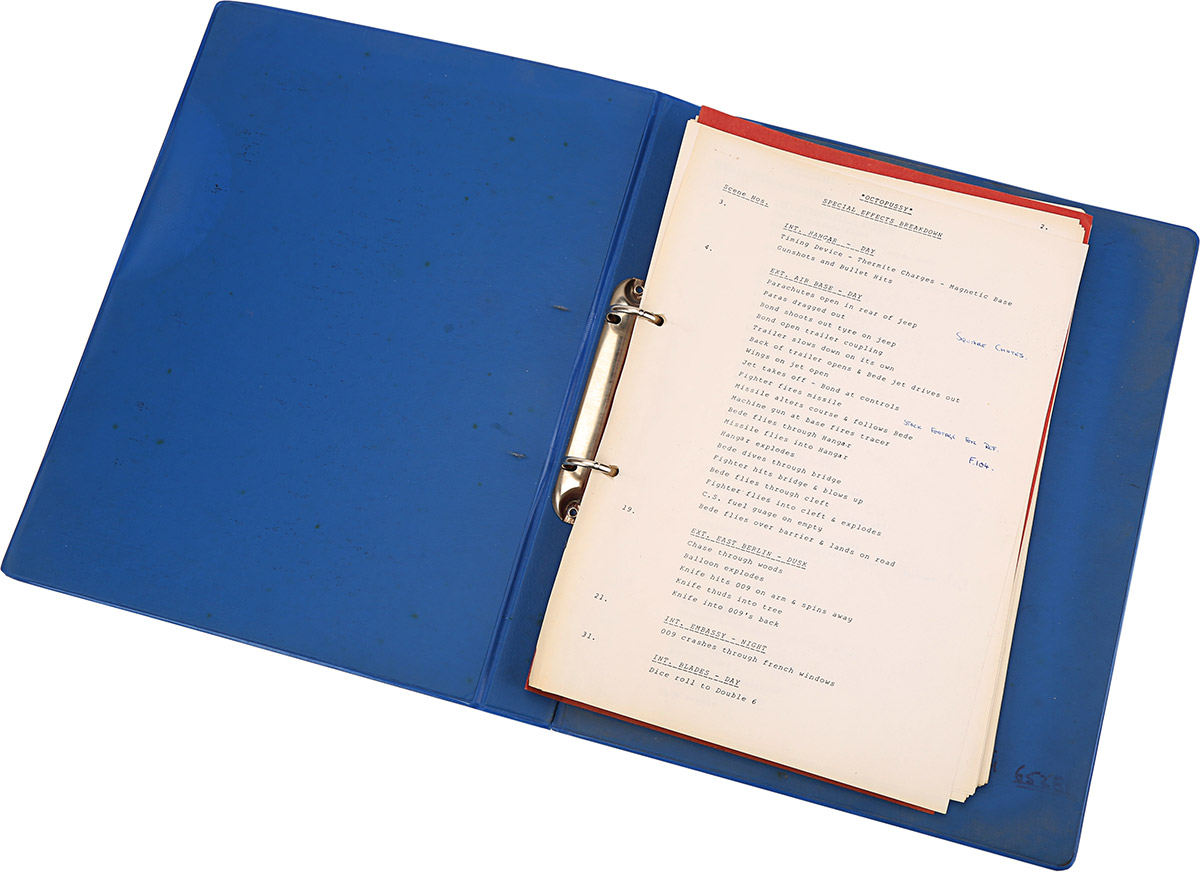 "OCTOPUSSY"
SPECIAL EFFECTS BREAKDOWN
2.
Scene Nos.
3.
INT. HANGAR - DAY
Timing Device - Thermite Charges - Magnetic Base
Gunshots and Bullet Hits
4.
EXT. AIR BASE - DAY
Parachutes open in rear of jeep
Paras dragged out
SQUARE CHUTES
Bond shoots out tyre on jeep
Bond open trailer coupling
Trailer slows down on its own
Back of trailer opens & Bede jet drives out
Wings on jet open
Jet takes off - Bond at controls
Fighter fires missile
STOCK FOOTAGE FOR REF.
F.104.
Missile alters course & follows Bede
Machine gun at base fires tracer
Bede flies through Hangar
Missile flies into Hangar
Hangar explodes
Bede dives through bridge
Fighter hits bridge & blows up
Bede flies through cleft
Fighter flies into cleft & explodes
C.S. fuel guage on empty
Bede flies over barrier & lands on road
19.
EXT. EAST BERLIN - DUSK
Chase through woods
Balloon explodes
Knife hits 009 on arm & spins away
Knife thuds into tree
Knife into 009's back
21.
INT. EMBASSY - NIGHT
009 crashes through french windows
31.
INT. BLADES - DAY
Dice roll to Double 6